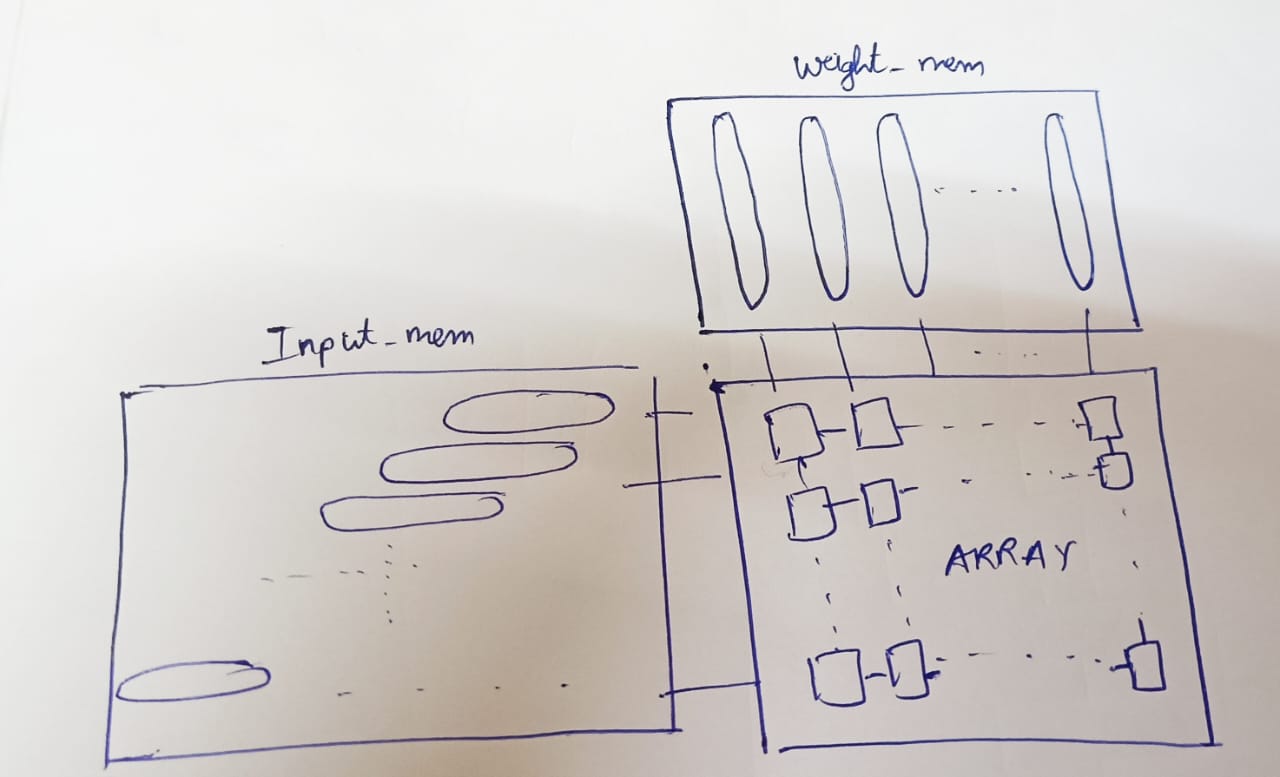 Weight_mem
Input_mem
ARRAY